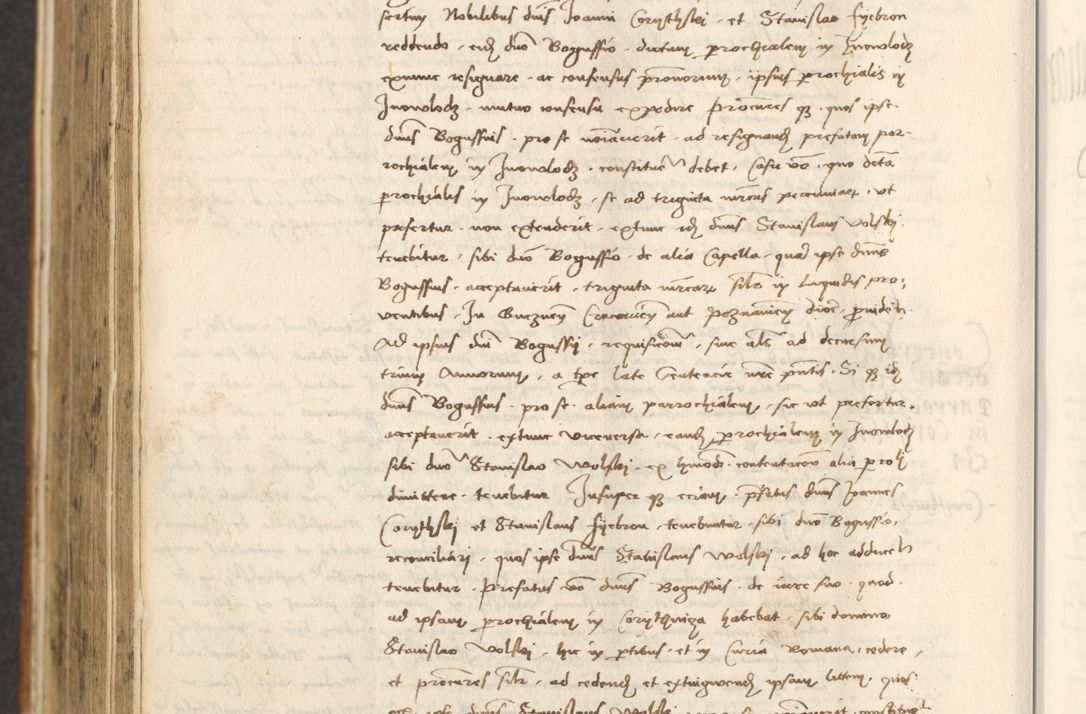 sertim Nobilibus dnis Joanni Corythski, et Stanislao Fyebron
reddendo, eidem dno Bogussio, dictam prochialem in Inowlodz
extunc resignare, ac consensus patronorum, ipsius prochialis in
Inowlodz, mutuo consensu expedire procures que, quos ipse
dnus Bogussius, pro se noiauerit, ad resignandam prefatam par-
rochialem in Inowlodz, constituere debet, Casu vo, quo dicta
prochialis in Inowlodz, se ad triginta mrcas pecuniar, ut
prefertur, non extenderit, extunc idem dnus Stanislaus Volski
tenebitur, sibi dno Bogussio, de alia Capella, quam ipse dnus
Bogussius, acceptauerit, triginta mrcar siml in liquidis pro-
uentibus, In Gneznen Cracouien aut Poznanien dioc, prouidere
Ad ipsius dni Bogussii, requisicom, siue als ad decursum
trium Annorum, a tpe late sentencie mre pntis, Si que idem
dnus Bogussius, pro se aliam parrochialem, sic ut prefertur,
acceptauerit, extunc viceuersa, eandem prochialem in Inowlodz
sibi dno Stanislao Wolski, ex hmodi contentacoe alia proli
dimittere, tenebitur Insuper que eciam, pfatus dnus Joannes
Corythski et Stanislaus Fyebron, tenebuntur, sibi dno Bogussio,
reconciliari, quos ipse dnus Stanislaus Wolski, ad hoc adducere
tenebitur, Prefatus vo dnus Bogussius, de iure suo, quod
ad ipsam prochialem in Corythniza habebat, sibi domino
Stanislao Volski, hic in ptibus, et in Curia Romana, cedere,
et procures siml, ad cedendum et extinguendum ipsam littem, quos